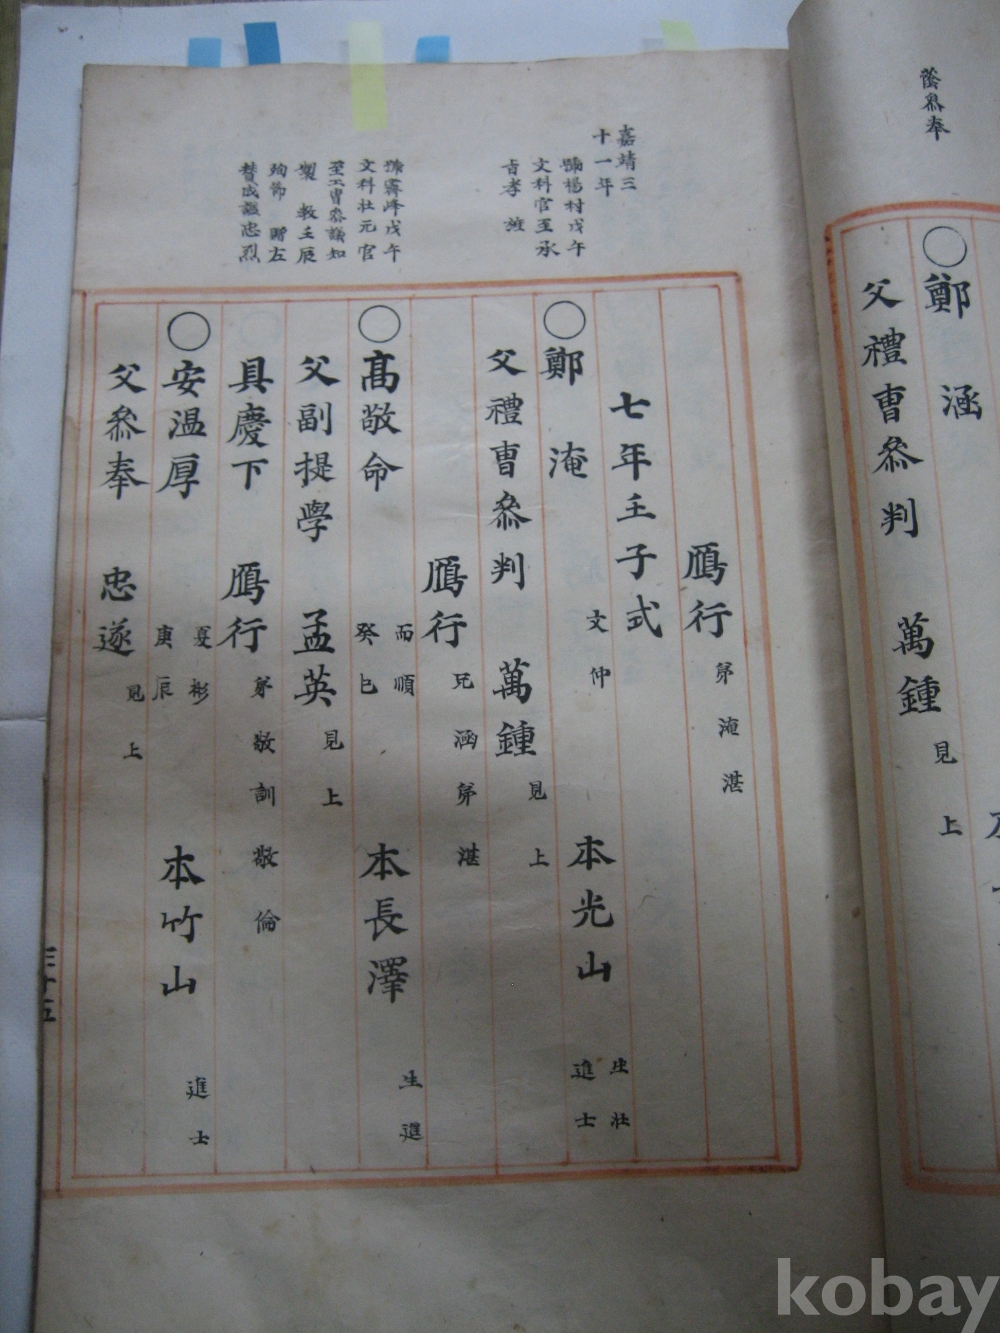 蔭參奉
○鄭 涵
父禮曹叅判 萬鍾 見上
嘉靖三
十一年
號楊村戊午
文科官至承
旨孝旌
號霽峰戊午
文科壯元官
至工曹叅議知
製教壬辰
殉節贈左
贊成諡忠烈
鴈行 弟淹湛
七年壬子式
○鄭 淹 文仲 本光山 生壯 進士
父禮曹叅判 萬鍾 見上
鴈行 兄涵弟湛
○高敬命 而順 癸巳 本長澤 生進
父副提學 孟英 見上
具慶下 鴈行 弟敬訓敬倫
○安温厚 夏彬 庚辰 本竹山 進士
父叅奉 忠遂 見上
三十五
kobay